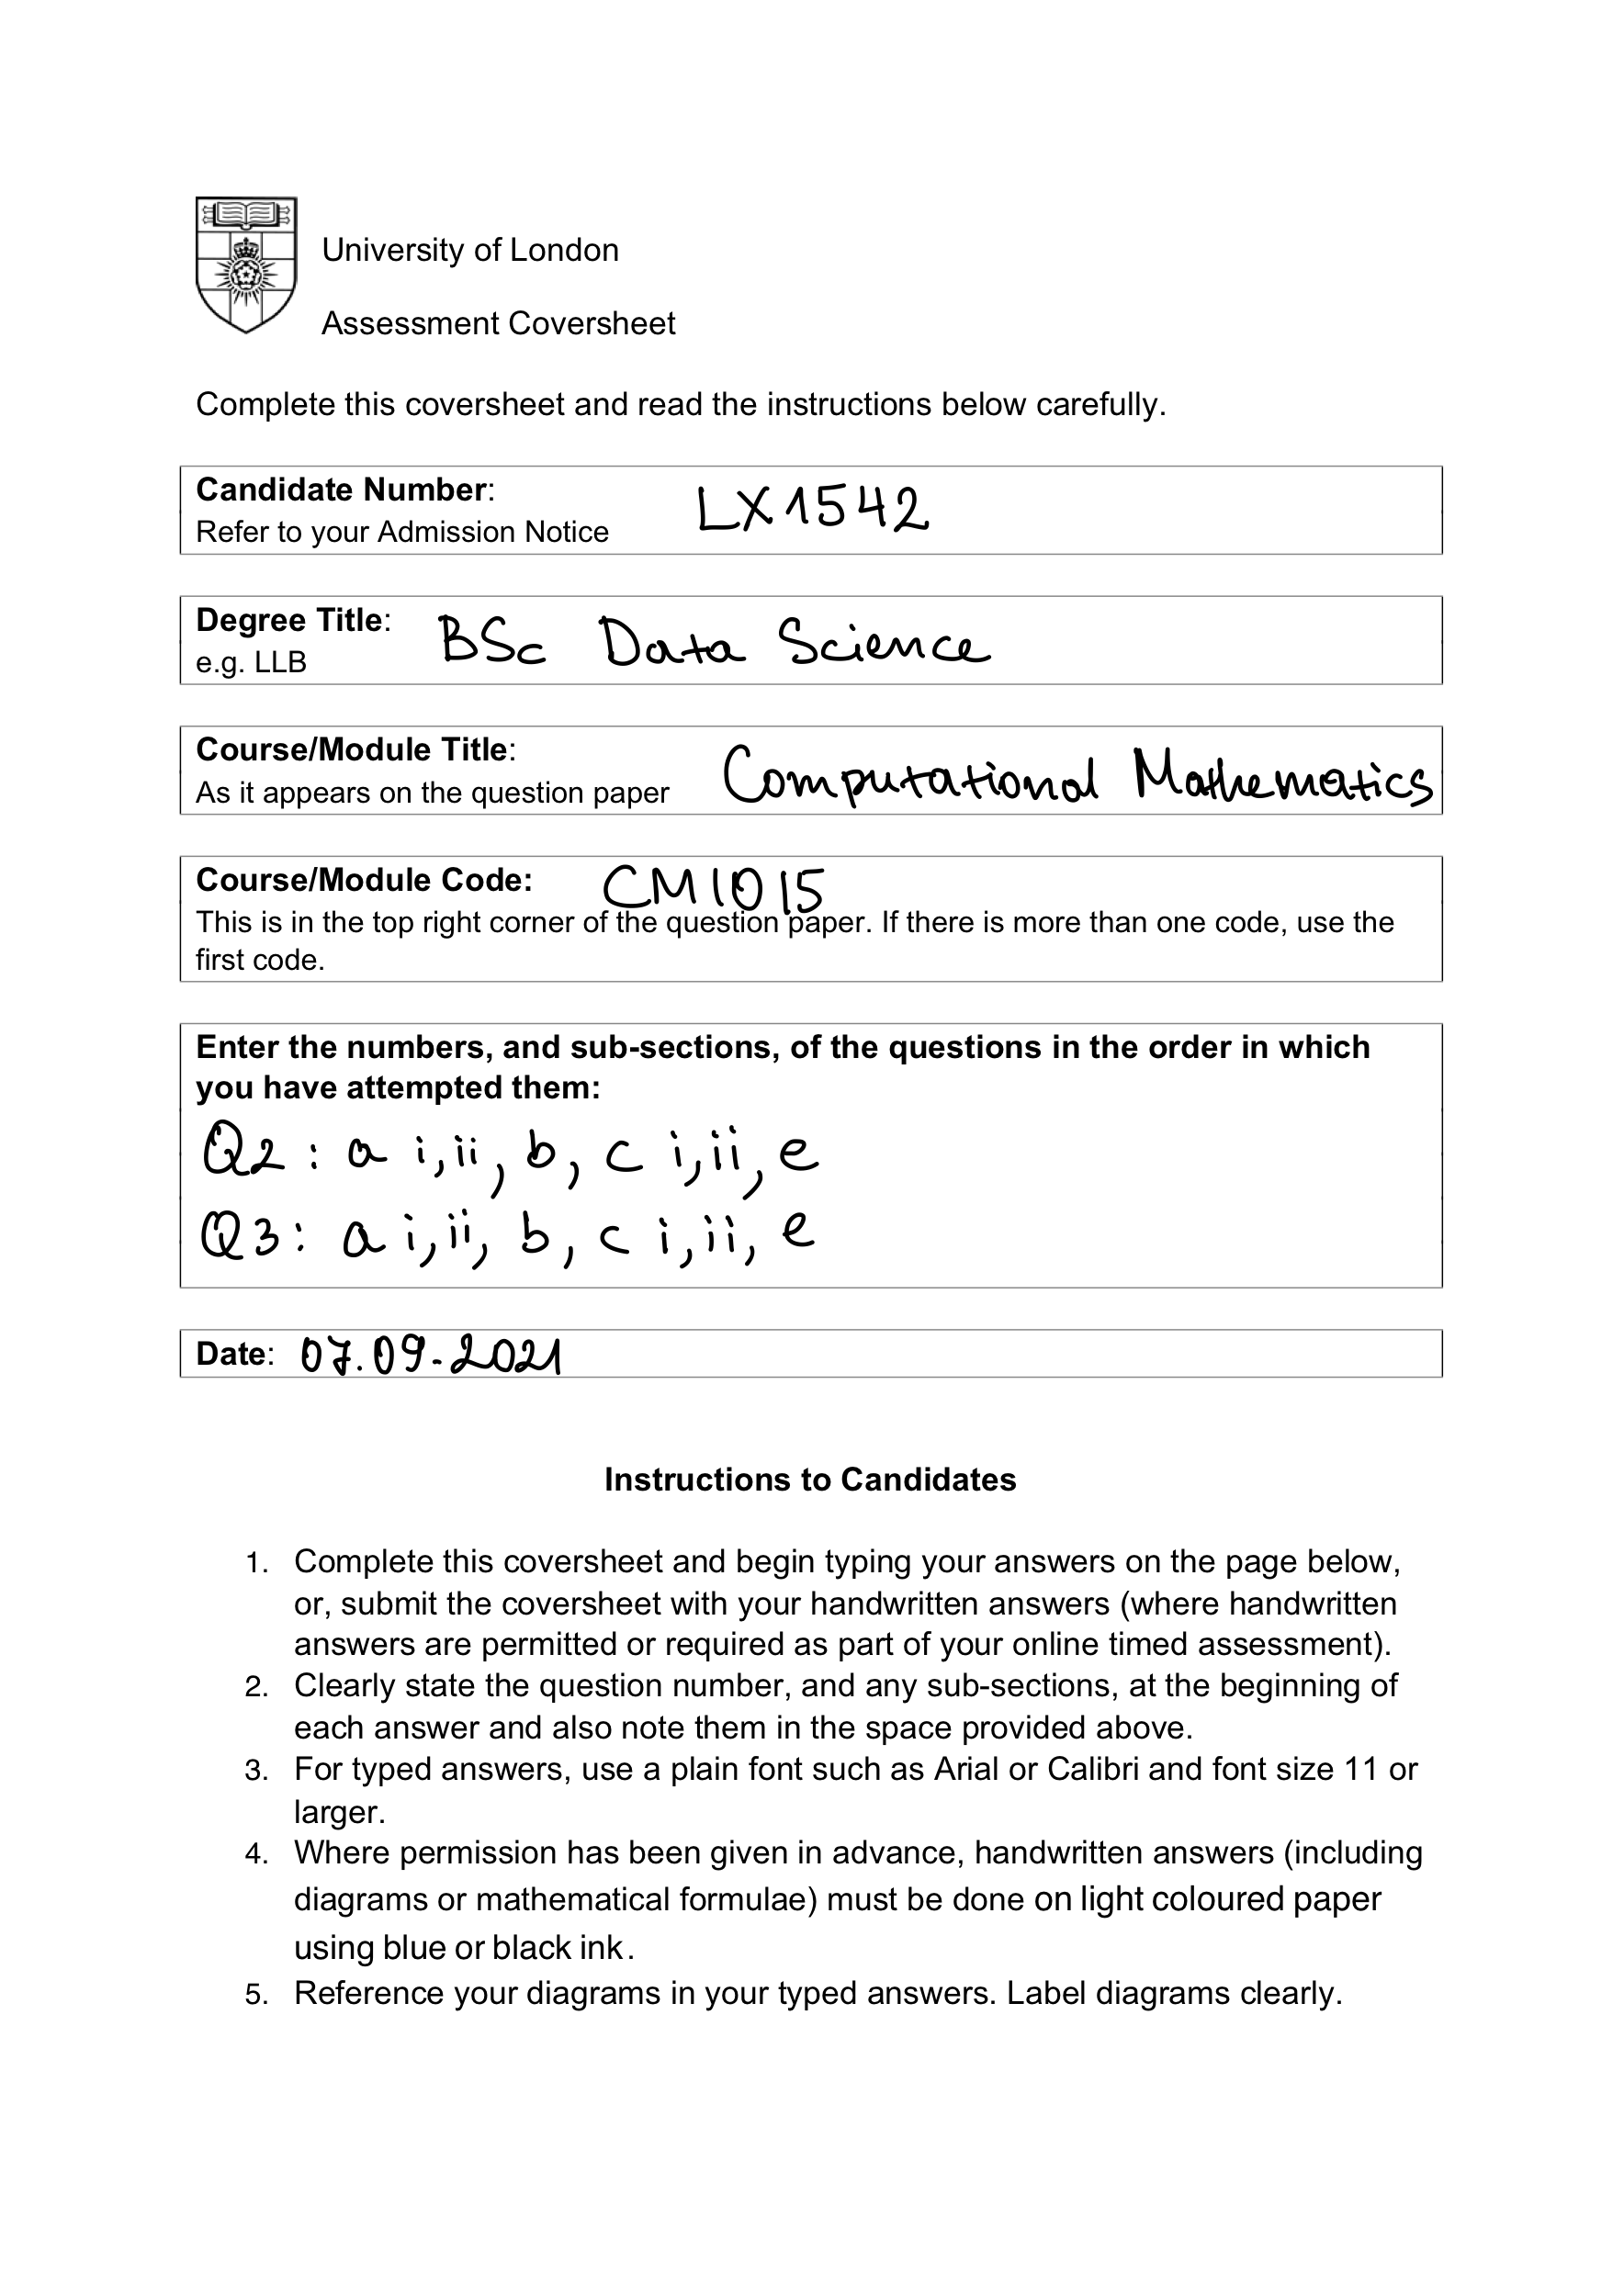 University of London
Assessment Coversheet
Complete this coversheet and read the instructions below carefully.
Candidate Number: LX1542
Refer to your Admission Notice
Degree Title: BSc Data Science
e.g. LLB
Course/Module Title: Computational Mathematics
As it appears on the question paper
Course/Module Code: CM1015
This is in the top right corner of the question paper. If there is more than one code, use the
first code.
Enter the numbers, and sub-sections, of the questions in the order in which
you have attempted them:
Q2 : a i,ii, b, c i,ii, e
Q3 : a i,ii, b, c i,ii, e
Date: 07.09.2021
Instructions to Candidates
1. Complete this coversheet and begin typing your answers on the page below,
or, submit the coversheet with your handwritten answers (where handwritten
answers are permitted or required as part of your online timed assessment).
2. Clearly state the question number, and any sub-sections, at the beginning of
each answer and also note them in the space provided above.
3. For typed answers, use a plain font such as Arial or Calibri and font size 11 or
larger.
4. Where permission has been given in advance, handwritten answers (including
diagrams or mathematical formulae) must be done on light coloured paper
using blue or black ink.
5. Reference your diagrams in your typed answers. Label diagrams clearly.